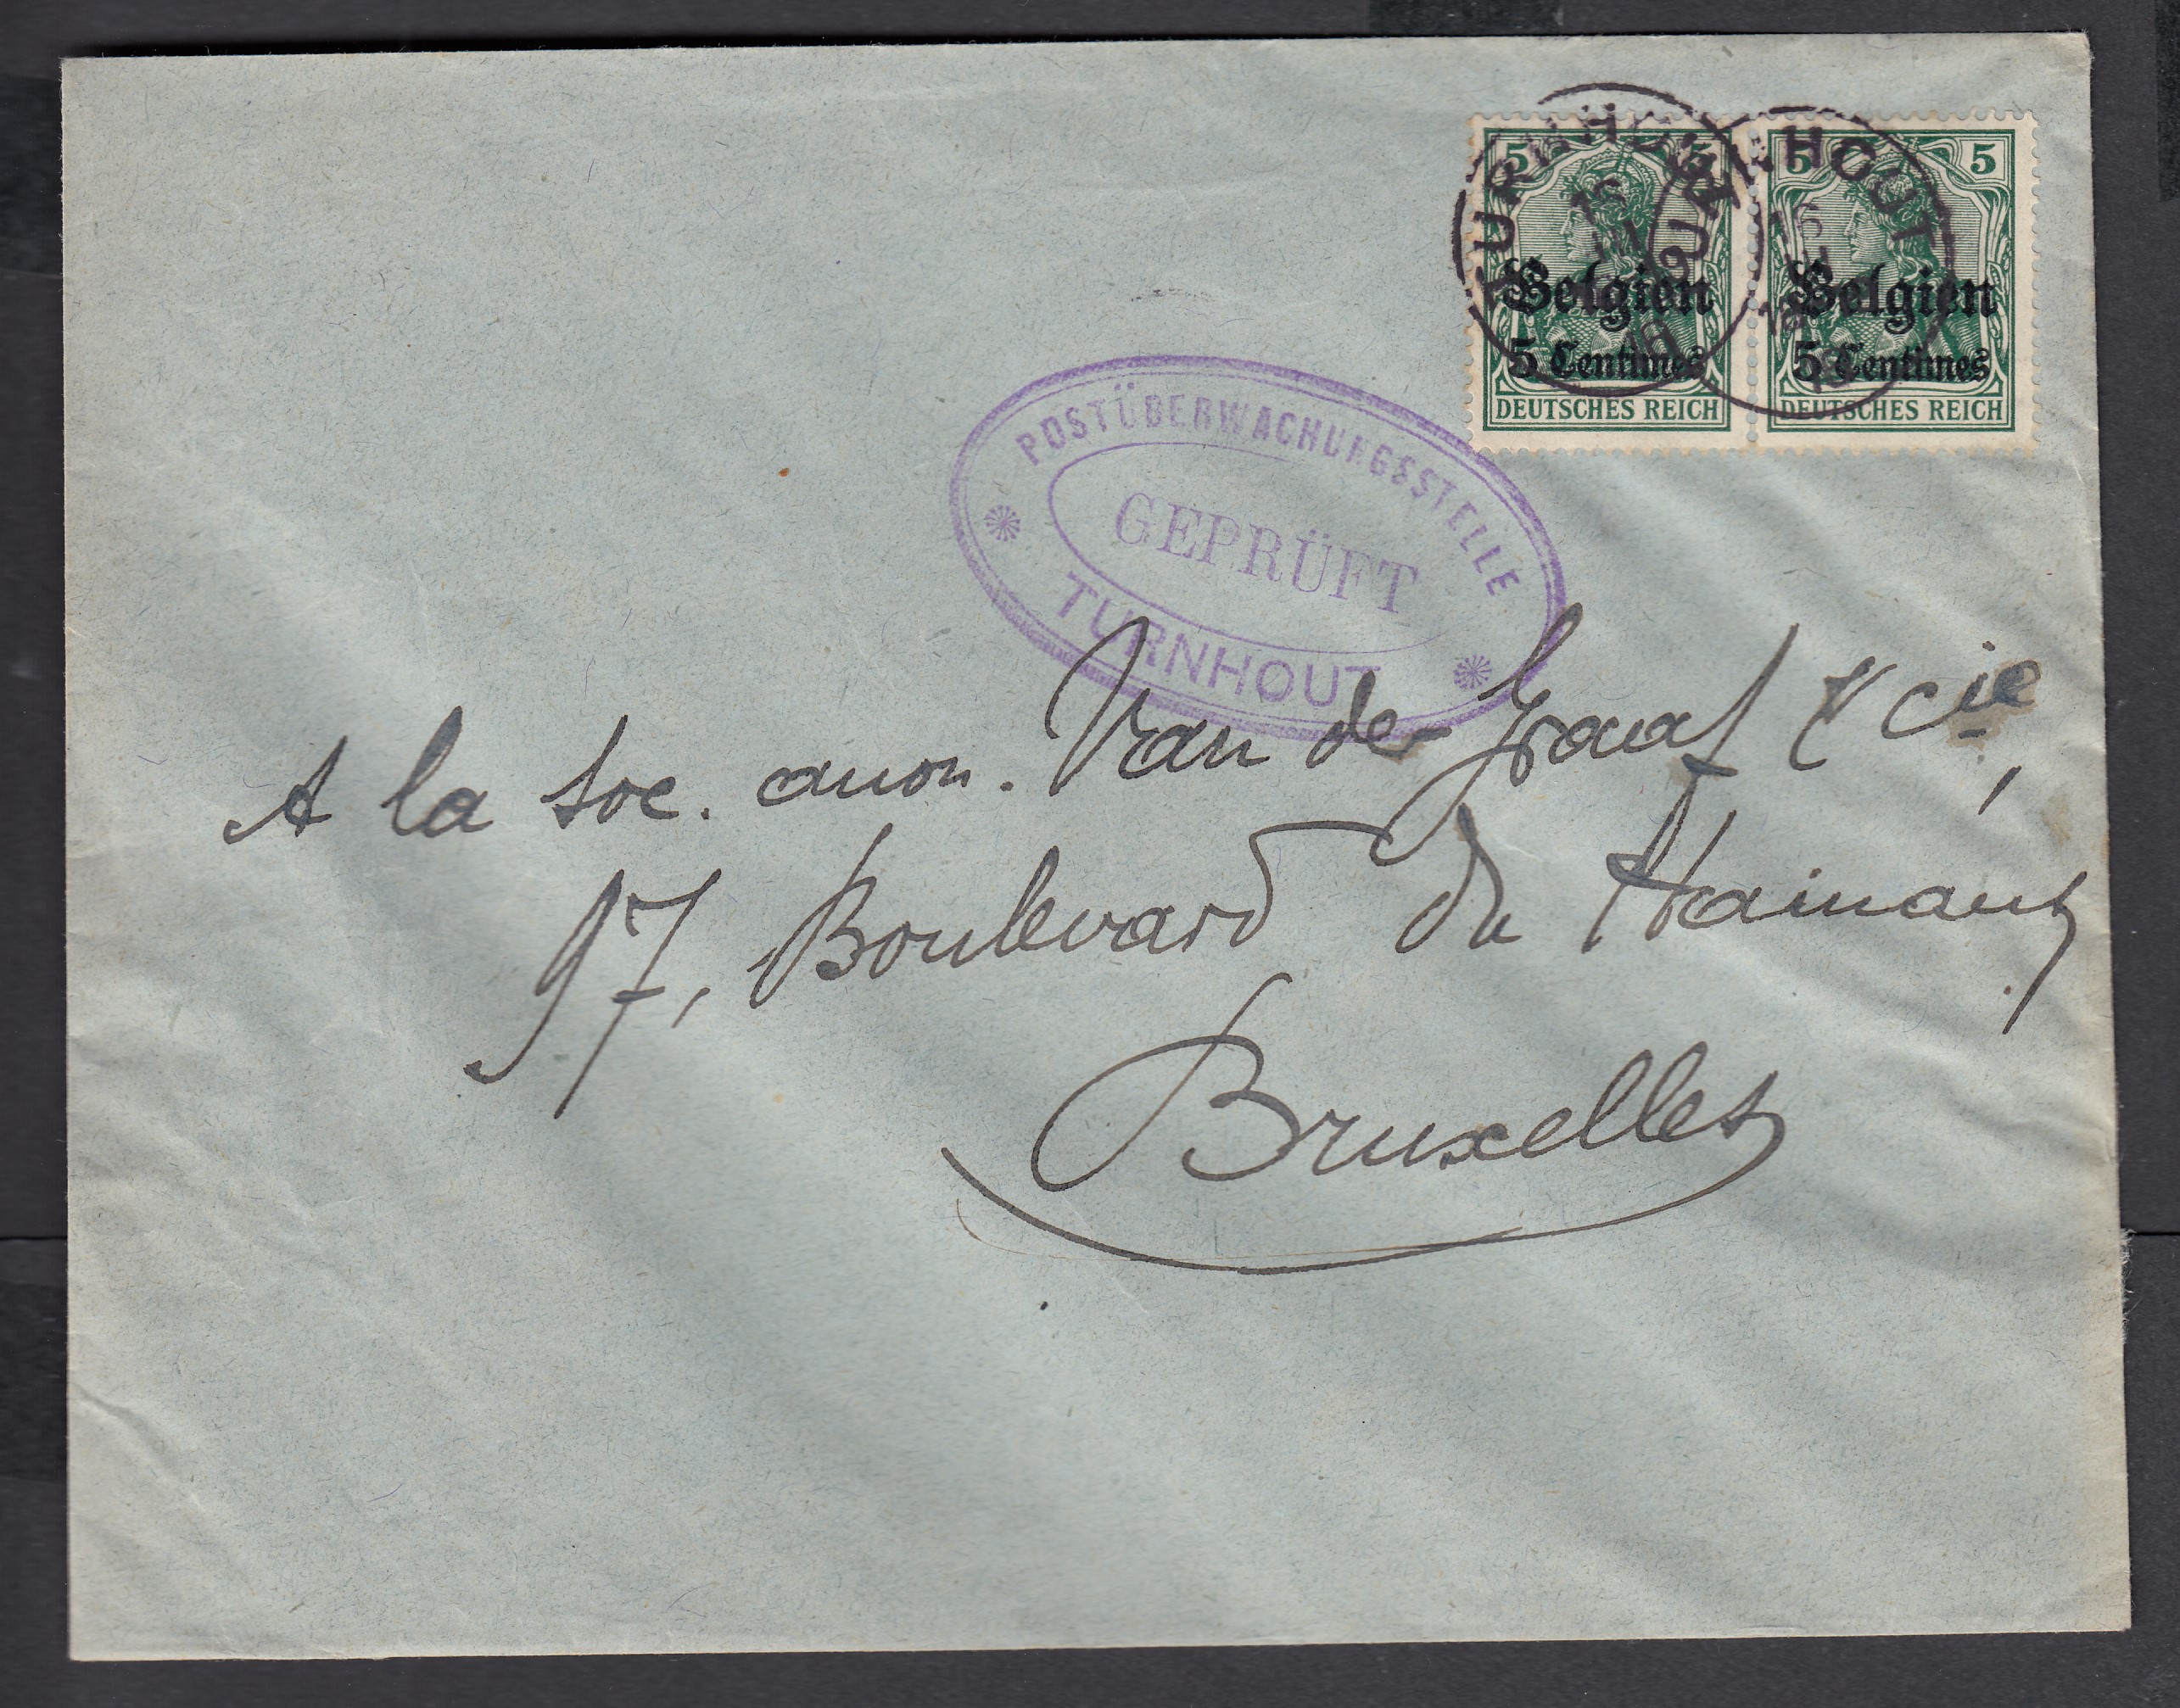 5 5
Belgien
5 Centimes
DEUTSCHES REICH
5 5
Belgien
5 Centimes
DEUTSCHES REICH
TURNHOUT
TURNHOUT
POSTÜBERWACHUNGSSTELLE
GEPRÜFT
TURNHOUT
A la Soc. anon. Van der Graaf & Cie,
97, Boulevard du Hainaut
Bruxelles